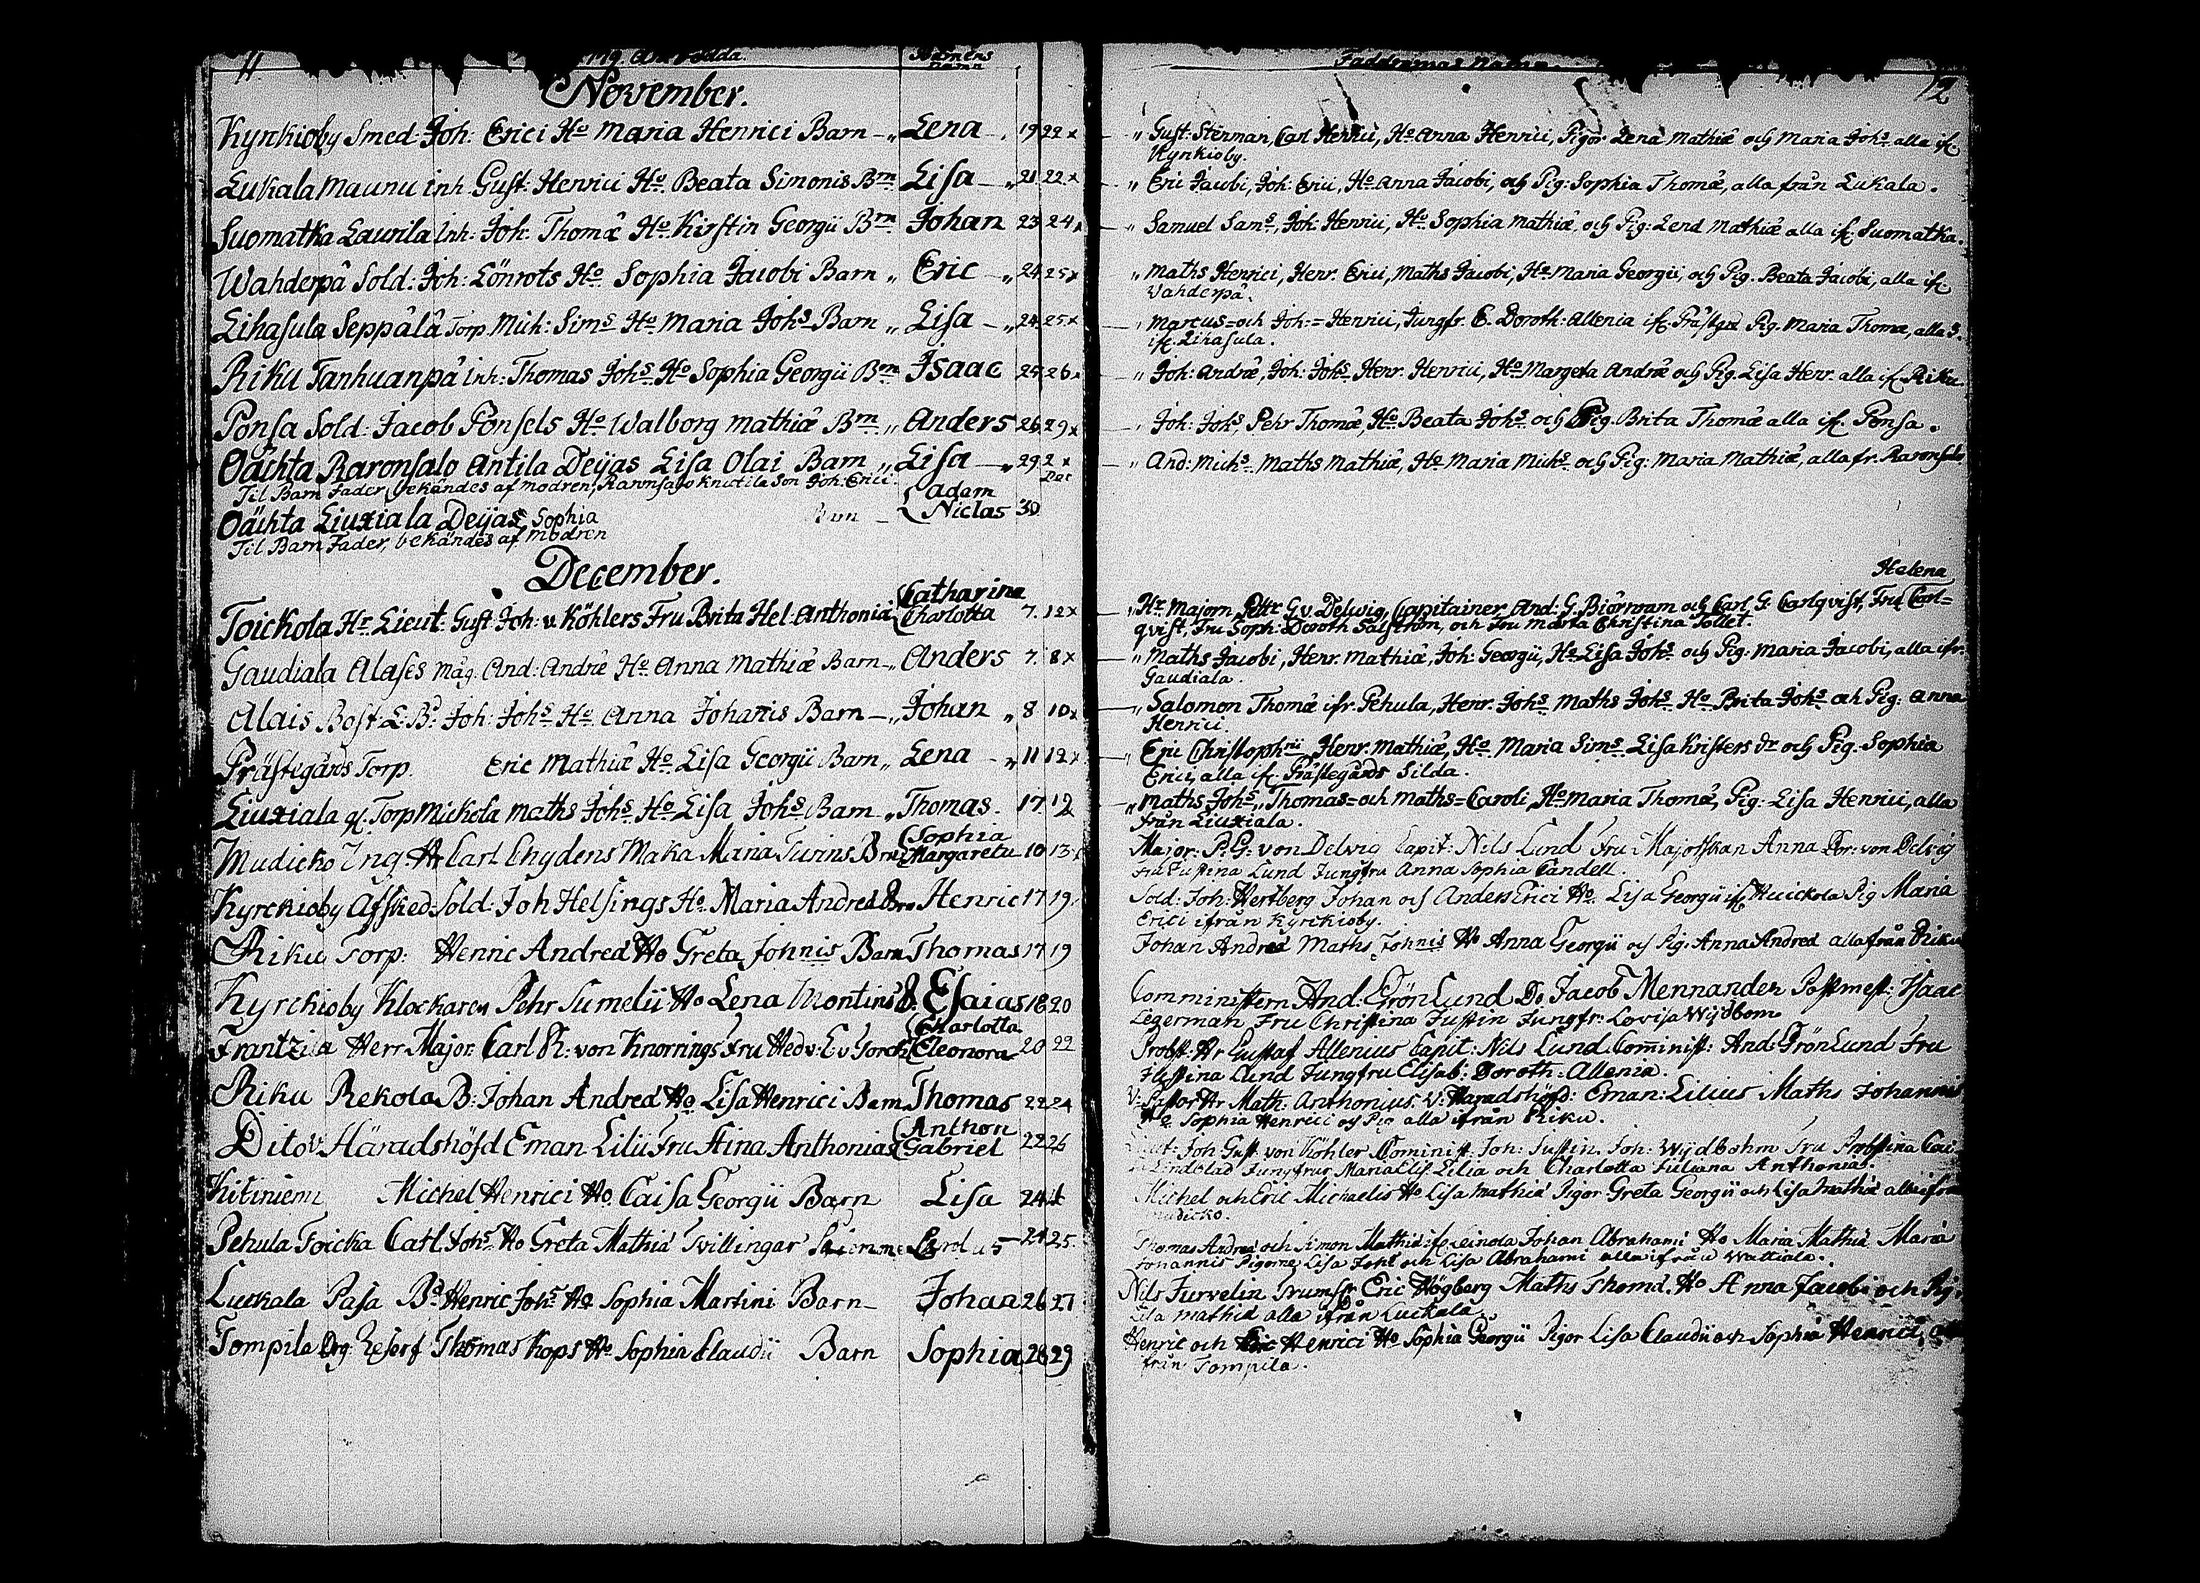 11
Födda.
Barnens
namn
November.
Kyrkioby Smed. Joh. Erici Ho Maria Henrici Barn Lena 19 22 x
Lukala Maunu inh. Gust: Henrici Ho Beata Simonis Brn Lisa 21 22 x
Suomatka Laurila Inh: Joh: Thomæ Ho Kirstin Georgii Brn Johan 23 24
Wahderpä Sold. Joh: Lönrots Ho Sophia Jacobi Barn Eric 24 25 x
Lihasula Seppälä Torp. Mich: Sims Ho Maria Johs Barn Lisa 24 25 x
Riku Tanhuanpä Inh: Thomas Johs Ho Sophia Georgii Brn Isaac 25 26
Ponsa Sold: Jacob Ponsels Ho Walborg Mathiæ Brn Anders 26 29 x
Oächta Raronsalo Antila Deijas Lisa Olai Barn Lisa 29 2 x
Dec
Til Barn Fader bekändes af modren, Son Joh: Erici
Adam
Oächta Liuxiala Deijas Sophia Barn Niclas 30
Til Barn Fader, bekändes af modren
December.
Catharina
Toickola Hr Lieut: Gust: Joh: v. Köhlers Fru Brita Hel: Anthonia Charlotta 7. 12 x
Gaudiala Alases Måg: And: Andræ Ho Anna Mathiæ Barn Anders 7. 8 x
Alais Bost. L: Bd Joh: Johs Ho Anna Johanis Barn Johan 8 10 x
Prästegårds Torp. Eric Mathiæ Ho Lisa Georgii Barn Lena 11 12 x
Liuxiala Torp Mickola Maths Johs Ho Lisa Johs Barn Thomas. 17. 19
Sophia
Mudicko Ing. Hr Carl Chydens Maka Maria Turins Brn Margareta 10 13
Kyrckioby Afsked: Sold: Joh Helsings Ho Maria Andreæ Brn Henric 17 19
Riku Torp: Henric Andreæ Ho Greta Johnis Barn Thomas 17 19
Kyrckioby Klockaren Pehr Sumelii Ho Lena Montins B. Esaias 18 20
Charlotta
Frantzila Herr Major Carl R: von Knorrings Fru Hedv: E v Torck Eleonora 20 22
Riku Rekola B: Johan Andreæ Ho Lisa Henrici Barn Thomas 22 24
Anthon
Dito V Häradshöfd Eman Lilii Fru Stina Anthonias Gabriel 22 26
Kitiniemi Michel Henrici Ho Caisa Georgii Barn Lisa 24
Pehula Toicka Carl Johs Ho Greta Mathiæ Tvillingar Carolus 24 25
Luckala Pasa Bd Henric Johs Ho Sophia Martini Barn Johan 26 27
Tompila Drg: Reserf Thomas Kops Ho Sophia Claudii Barn Sophia 28 29
Faddrarnas namn
12
Gust: Stenman, Carl Henrici, Ho Anna Henrici, Pigor Lena Mathiæ och Maria Johs alla ifr.
Kyrkioby.
Eric Jacobi, Joh: Erici, Ho Anna Jacobi, och Pig: Sophia Thomæ, alla från Lukala.
Samuel Sams, Joh: Henrici, Ho Sophia Mathiæ, och Pig: Lena Mathiæ alla ifr. Suomatka.
Maths Henrici, Henr. Erici, Maths Jacobi, Ho Maria Georgii, och Pig. Beata Jacobi, alla ifr.
Wahderpä.
Marcus= och Joh:= Henrici, Jungfr. E. Doroth: Allenia ifr. Prästgd Pig. Maria Thomæ, alla
ifr. Lihasula.
Joh: Andræ, Joh: Johs Henr. Henrici, Ho Margeta Andræ och Pig. Lisa Henr. alla ifr. Riku.
Joh: Johs, Pehr Thomæ, Ho Beata Johs och Pig. Brita Thomæ alla ifr. Ponsa.
And: Michs, Maths Mathiæ, Ho Maria Michs och Pig: Maria Mathiæ, alla fr. Raronsalo
Helena
Hr Majorn Petter G. v. Delwig, Capitainer And: G. Biörnram och Carl G: Carlqvist, Fru Carl=
qvist, Fru Soph: Doroth Salström, och Fru Märta Christina Tollet.
Maths Jacobi, Henr. Mathiæ, Joh: Georgii, Ho Lisa Johs och Pig: Maria Jacobi, alla ifr.
Gaudiala.
Salomon Thomæ ifr. Pehula, Henr. Johs Maths Johs Ho Brita Johs och Pig: Anna
Henrici.
Eric Christophrii Henr. Mathiæ, Ho Maria Sims Lisa Kristers dr och Pig: Sophia
Erici, alla ifr. Prästegårds Silda.
Maths Johs, Thomas= och Maths= Caroli, Ho Maria Thomæ, Pig: Lisa Henrici, alla
från Liuxiala.
Major: P: G: von Delvig Capit: Nils Lund Fru Majorskan Anna Dor: von Delvig
Fru Lund Jungfru Anna Sophia Candell.
Sold: Joh: Hertberg Johan och Anders Erici Ho. Lisa Georgii ifr Pig Maria
Erici ifrån Kyrckioby.
Johan Andreæ Maths Johnis Ho Anna Georgii och Pig. Anna Andreæ alla från Riku
Comministern And: Grönlund Do Jacob Mennander Postmest: Isaac
Legerman Fru Christina Justin Jungfr: Lovisa Wijdbom
Probst: Hr Gustaf Allenius Capit: Nils Lund Cominist: And: Grönlund Fru
Lund Jungfru Elisab: Doroth: Allenia.
V: Pastor Hr Math: Anthonius V: Haradshöfd: Eman: Lilius Maths Johannis
Ho Sophia Henrici och Pig alla ifrån Riku.
Joh Gust: von Köhler Cominist: Joh: Justin, Joh: Wijdbohm Fru Probstina
Lindblad Jungfrur Maria Elis. Lilia och Charlotta Juliana Anthonia.
Michel och Eric Michaelis Ho Lisa Mathiæ Pigor Greta Georgii och Lisa Mathiæ alla ifrån
Mudicko.
Thomas Andreæ och Simon Mathiæ Johan Abrahami Ho Maria Mathiæ Maria
Johannis Pigorne Lisa Johs och Lisa Abrahami alla ifrån Wättiala.
Nils Furvelin Trumsl: Eric Högberg Maths Thomæ. Ho Anna Jacobi och Pig.
Lisa Mathiæ alla ifrån Luckala
Henric och Eric Henrici Ho Sophia Georgii Pigor Lisa Claudii och Sophia Henrici
från Tompila.